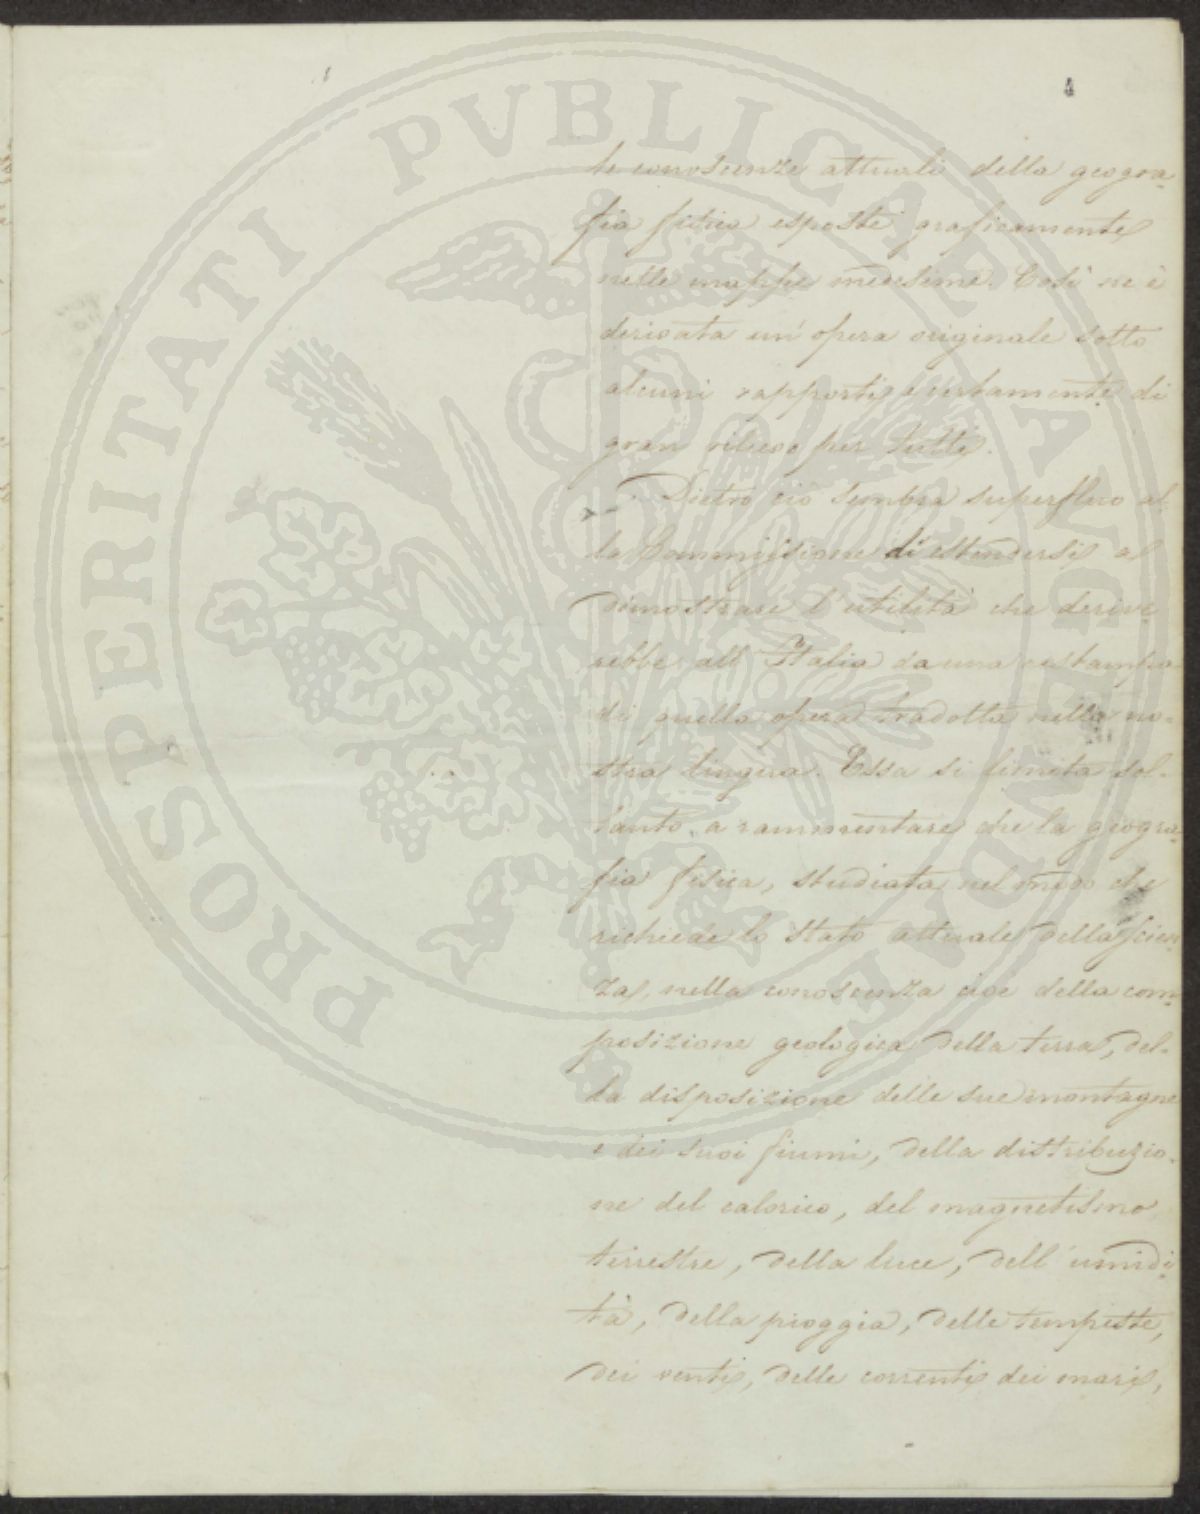 4
le conoscenze attuali della geogra-
fia fisica esposte graficamente
nelle mappe medesime. Così ne è
derivata un'opera originale sotto
alcuni rapporti, e certamente di
gran rilievo per tutti.
Dietro ciò sembra superfluo al-
la Commissione di estendersi a
dimostrare l'utilità che derive-
rebbe all'Italia da una ristampa
di quella opera tradotta nella no-
stra lingua. Essa si limita sol-
tanto a rammentare che la geogra-
fia fisica, studiata nel modo che
richiede lo stato attuale della scien-
za, nella conoscenza cioè della com-
posizione geologica della terra, del-
la disposizione delle sue montagne
e dei suoi fiumi, della distribuzio-
ne del calorico, del magnetismo
terrestre, della luce, dell'umidi-
tà, della pioggia, delle tempeste,
dei venti, delle correnti dei mari,
PROSPERITATI PVBLICAE AVGENDAE